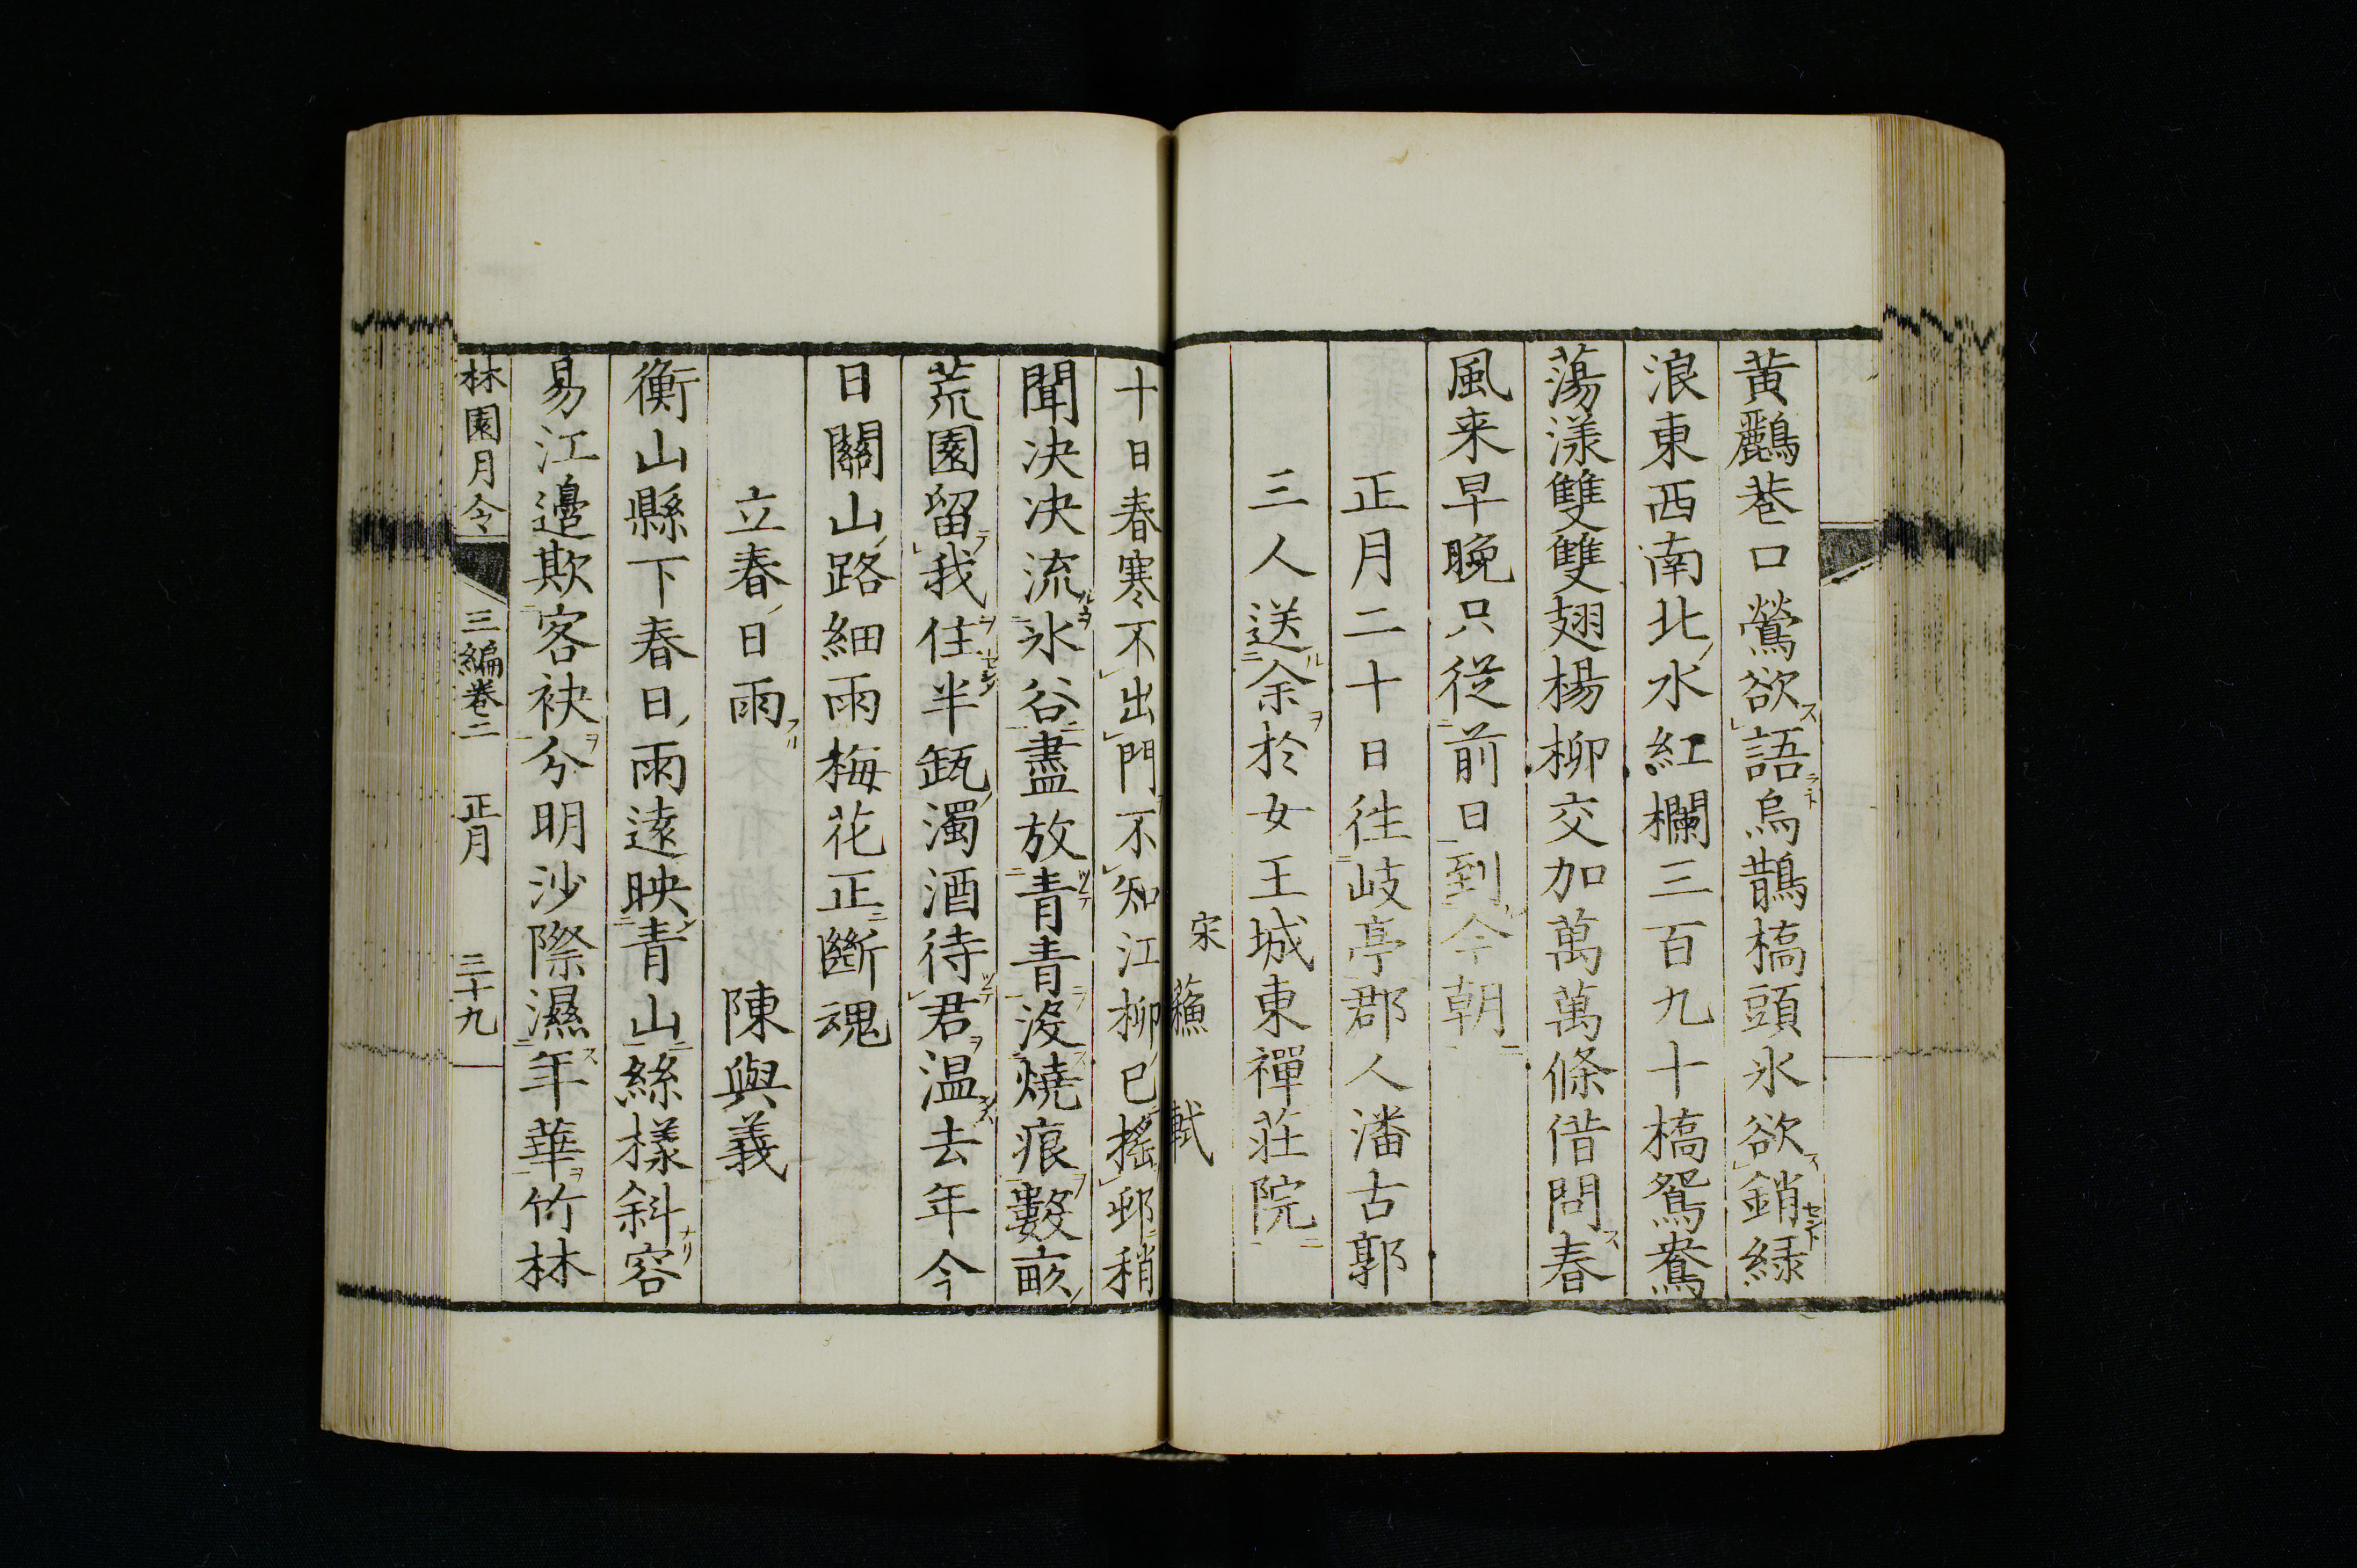 黄鸝巷口鶯欲語烏鵲橋頭氷欲銷緑
浪東西南北水紅欄三百九十橋鴛鴦
蕩漾雙雙翅楊柳交加萬萬條借問春
風来早晩只從前日到今朝
正月二十日徃岐亭郡人潘古郭
三人送余於女王城東禪荘院
宋蘇軾
十日春寒不出門不知江柳已搖邨稍
聞决决流氷谷盡放青青沒燒痕數畝
荒園留我住半瓶濁酒待君温去年今
日關山路細雨梅花正斷魂
立春日雨　陳與義
衡山縣下春日雨遠映青山絲樣斜容
易江邊欺客袂分明沙際濕年華竹林
林園月令　三編卷二　正月　三十九